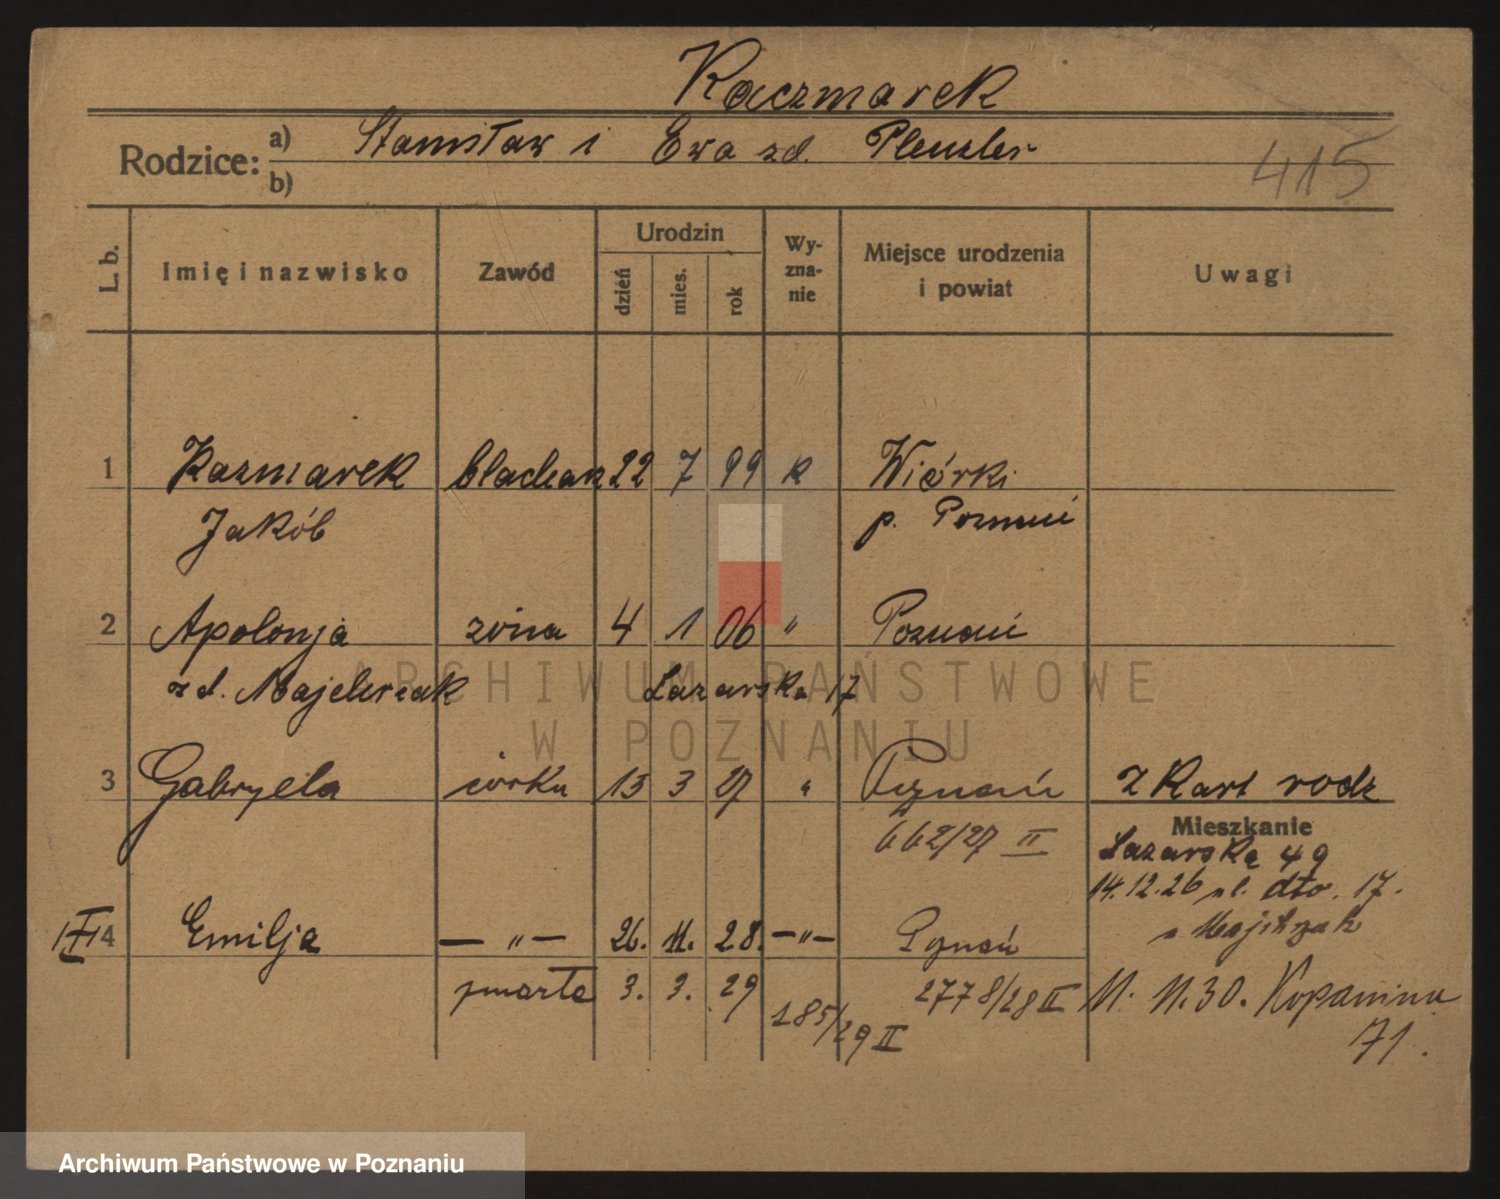 Kaczmarek
Rodzice: a) Stanisław i Ewa zd. Plenzler
b)
415
L. b. Imię i nazwisko Zawód Urodzin dzień mies. rok Wy-zna-nie Miejsce urodzenia i powiat Uwagi
1 Kazmarek blacharz 22 7 99 k Wiórki
Jakób p. Poznań
2 Apolonja żona 4 1 06 " Poznań
zd. Majchrzak Łazarska 17
3 Gabryela córka 13 3 27 " Poznań Z Kart rodz
662/27 II Mieszkanie
Łazarska 49
14.12.26 ul. dto. 17.
u Majchrzak
4 Emilja — " — 26. 11. 28. — " — Poznań
zmarła 3. 3. 29 2778/28 II 11. 11. 30. Kopanina
185/29 II 71.
ARCHIWUM PAŃSTWOWE
W POZNANIU
Archiwum Państwowe w Poznaniu